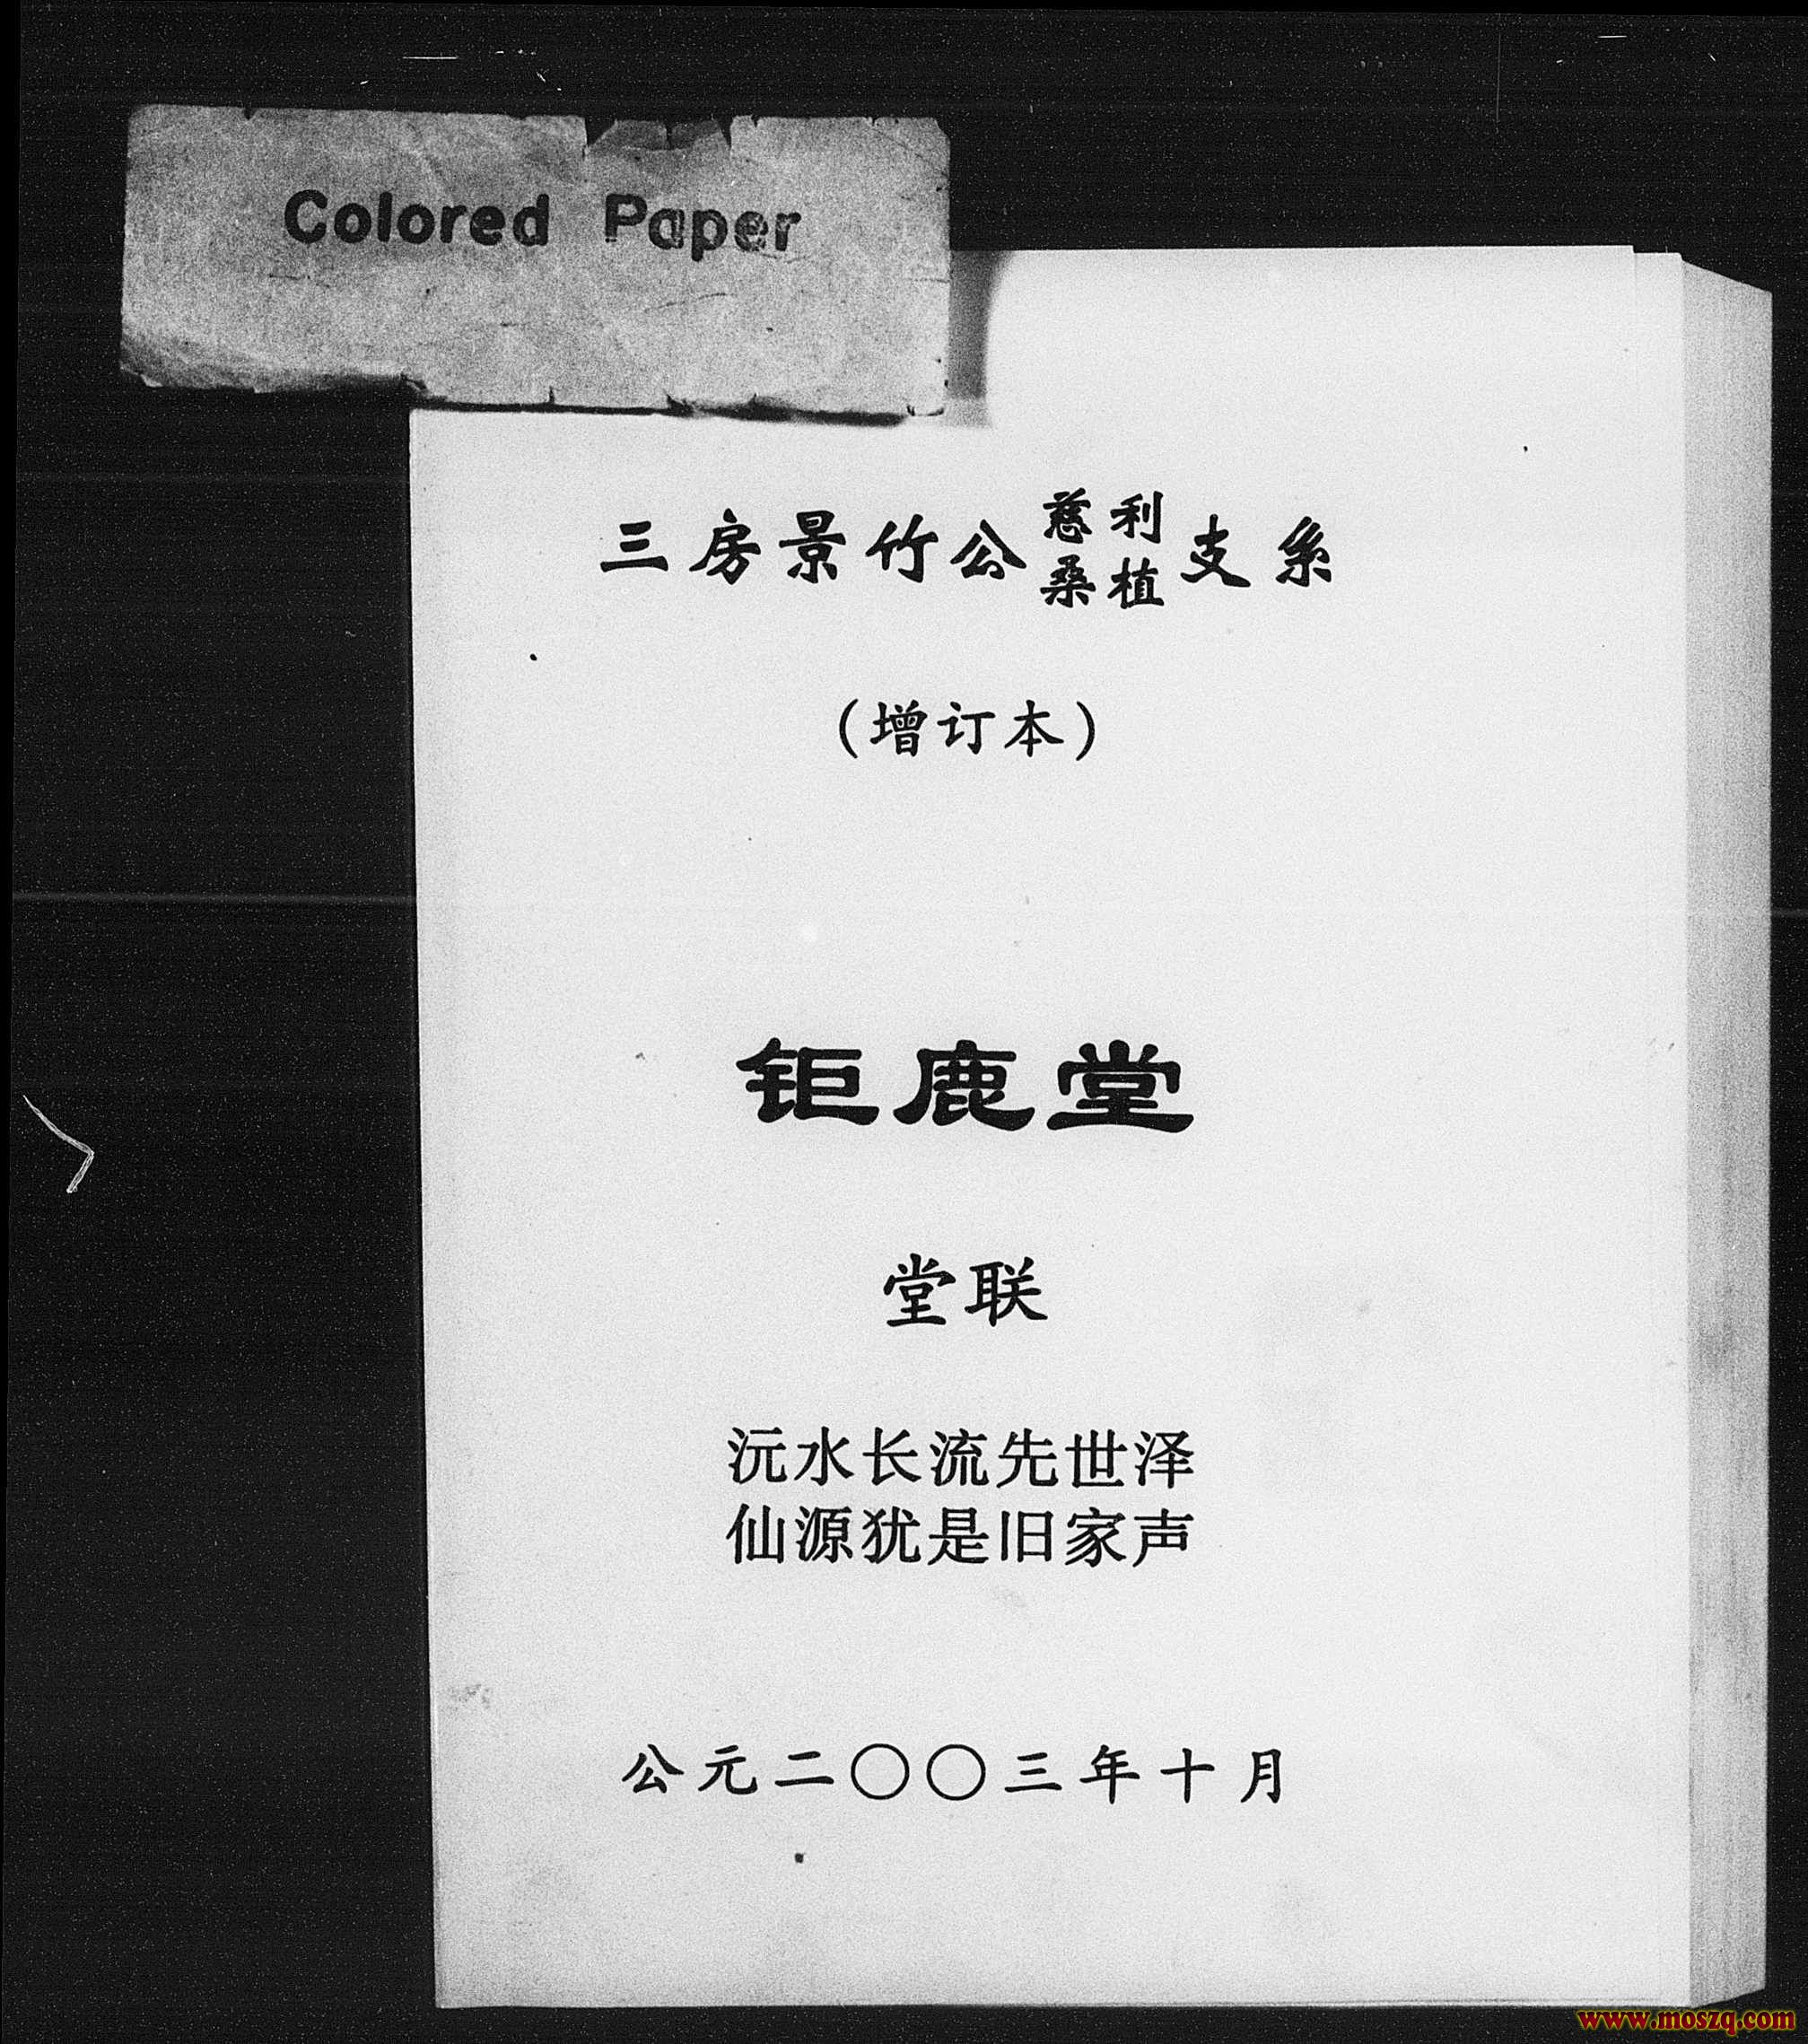 Colored Paper
三房景竹公慈利桑植支系
(增订本)
钜鹿堂
堂联
沅水长流先世泽
仙源犹是旧家声
公元二〇〇三年十月
www.moszq.com